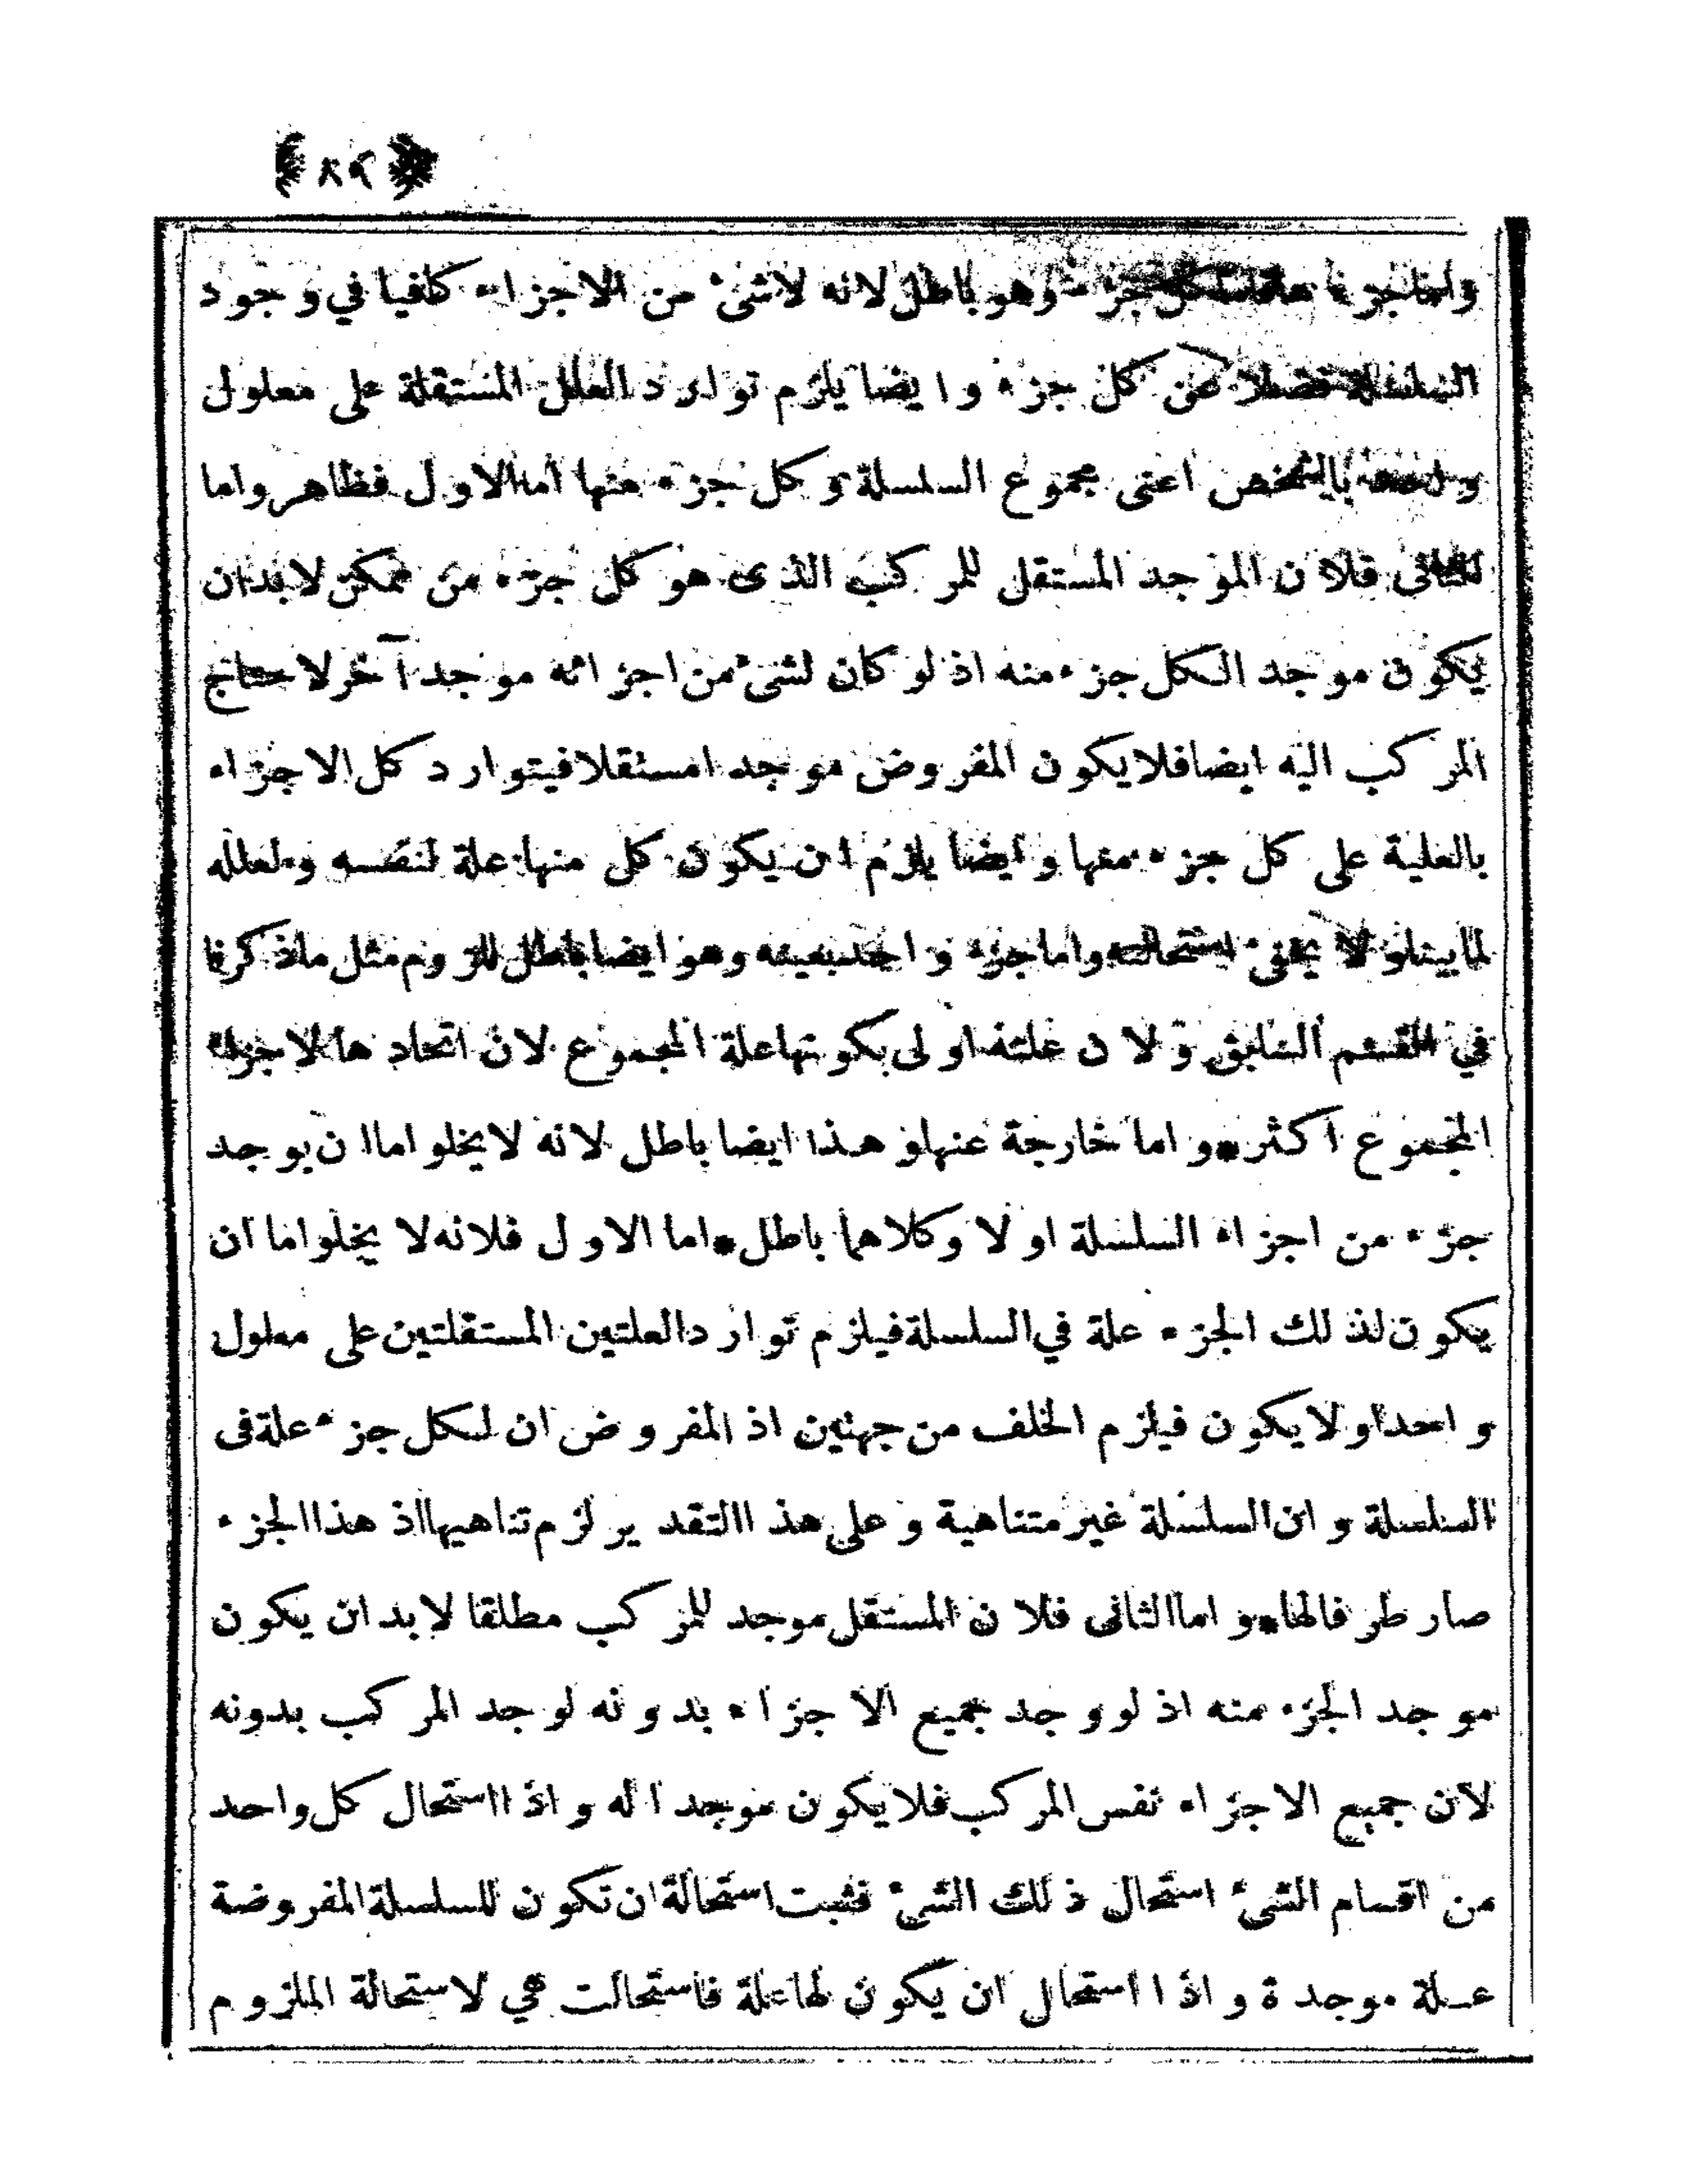 ﴿ ٨٩ ﴾
واما جزء منها كل جزء وهو باطل لانه لاشئ من الاجزاء كافيا في وجود
السلسلة فضلا عن كل جزء وايضا يلزم توارد العلل المستقلة على معلول
واحد بالشخص اعنى مجموع السلسلة وكل جزء منها اما الاول فظاهر واما
الثانى فلان الموجد المستقل للمركب الذى هو كل جزء من ممكن لابد ان
يكون موجد الكل جزء منه اذ لو كان لشئ من اجزائه موجد آخر لاحتاج
المركب اليه ايضا فلا يكون المفروض موجدا مستقلا فيتوارد كل الاجزاء
بالعلية على كل جزء منها وايضا يلزم ان يكون كل منها علة لنفسه ولعلله
لما بينا ولا يخفى استحالته واما جزء واحد بعينه وهو ايضا باطل للزوم مثل ما ذكرنا
في القسم السابق ولان علته اولى بكونها علة المجموع لان اتحادها لاجزاء
المجموع اكثر * واما خارجة عنها وهذا ايضا باطل لانه لا يخلو اما ان يوجد
جزء من اجزاء السلسلة او لا وكلاهما باطل * اما الاول فلانه لا يخلو اما ان
يكون لذلك الجزء علة في السلسلة فيلزم توارد العلتين المستقلتين على معلول
واحد او لا يكون فيلزم الخلف من جهتين اذ المفروض ان لكل جزء علة فى
السلسلة وان السلسلة غير متناهية وعلى هذا التقدير لزم تناهيها اذ هذا الجزء
صار طرفا لها * واما الثانى فلان المستقل موجد للمركب مطلقا لابد ان يكون
موجد الجزء منه اذ لو وجد جميع الاجزاء بدونه لوجد المركب بدونه
لان جميع الاجزاء نفس المركب فلا يكون موجدا له واذا استحال كل واحد
من اقسام الشئ استحال ذلك الشئ فثبت استحالة ان تكون للسلسلة المفروضة
علة موجدة واذا استحال ان يكون لها علة فاستحالت هي لاستحالة الملزوم